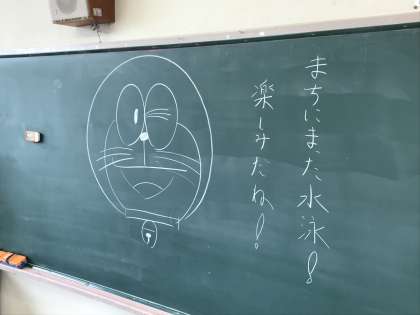 まちにまった水泳！
楽しみだね！